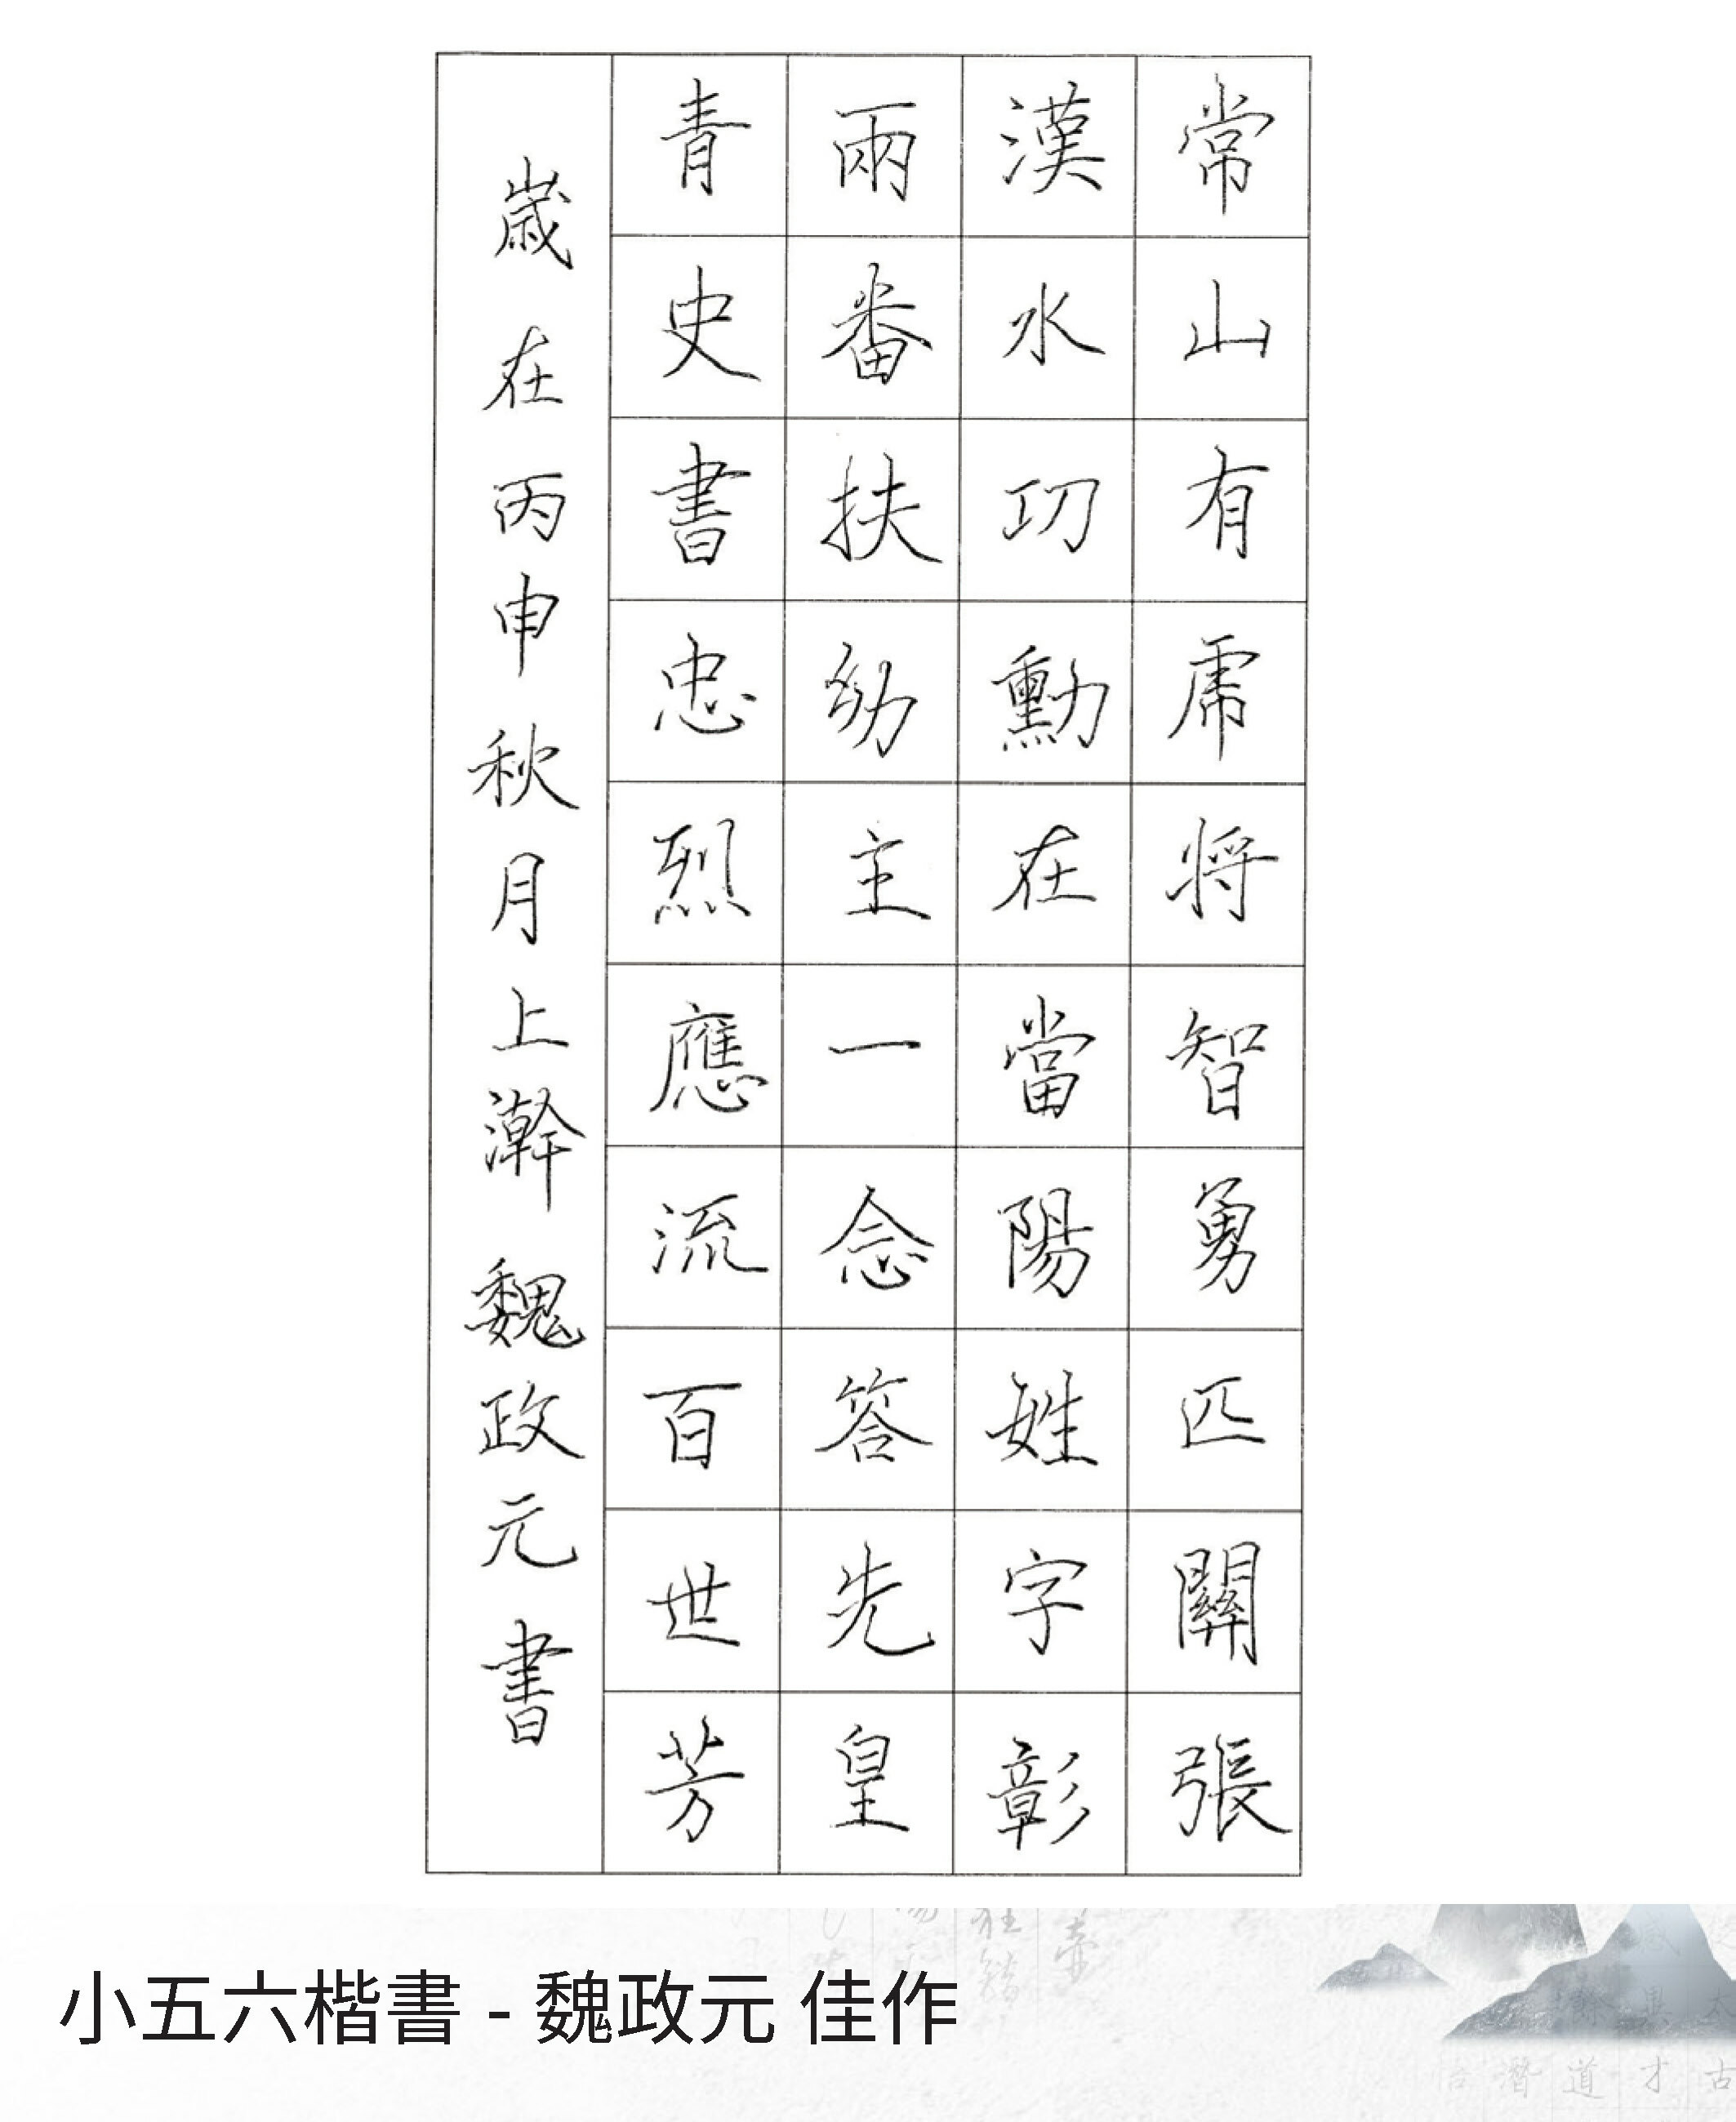 常山有虎將智勇匹關張
漢水功勳在當陽姓字彰
兩番扶幼主一念答先皇
青史書忠烈應流百世芳
歲在丙申秋月上澣魏政元書
小五六楷書 - 魏政元 佳作